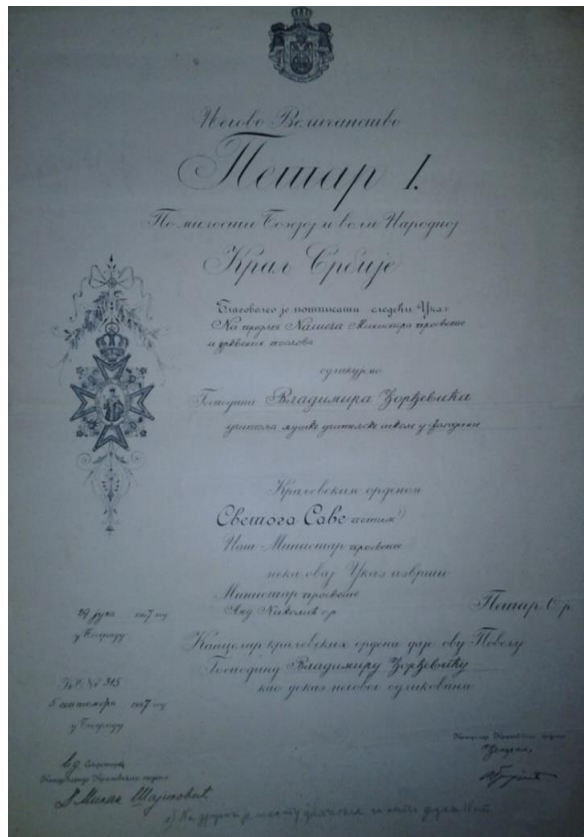 Његово Величанство
Петар I.
По милости Божјој и вољи Народној
Краљ Србије
Благоволео је потписати следећи Указ
На предлог Нашега Министра просвете
и црквених послова
одликујемо
Господина Владимира Ђорђевића
учитеља мушке учитељске школе у Јагодини
Краљевским орденом
Светога Саве
Наш Министар просвете
нека овај Указ изврши
Министар просвете
Анд. Николић с.р.
Петар с.р.
у Београду
Канцелар краљевских ордена даје ову Повељу
Господину Владимиру Ђорђевићу
као доказ његовог одликовања
№ 315
5 септембра 1907 год
у Београду